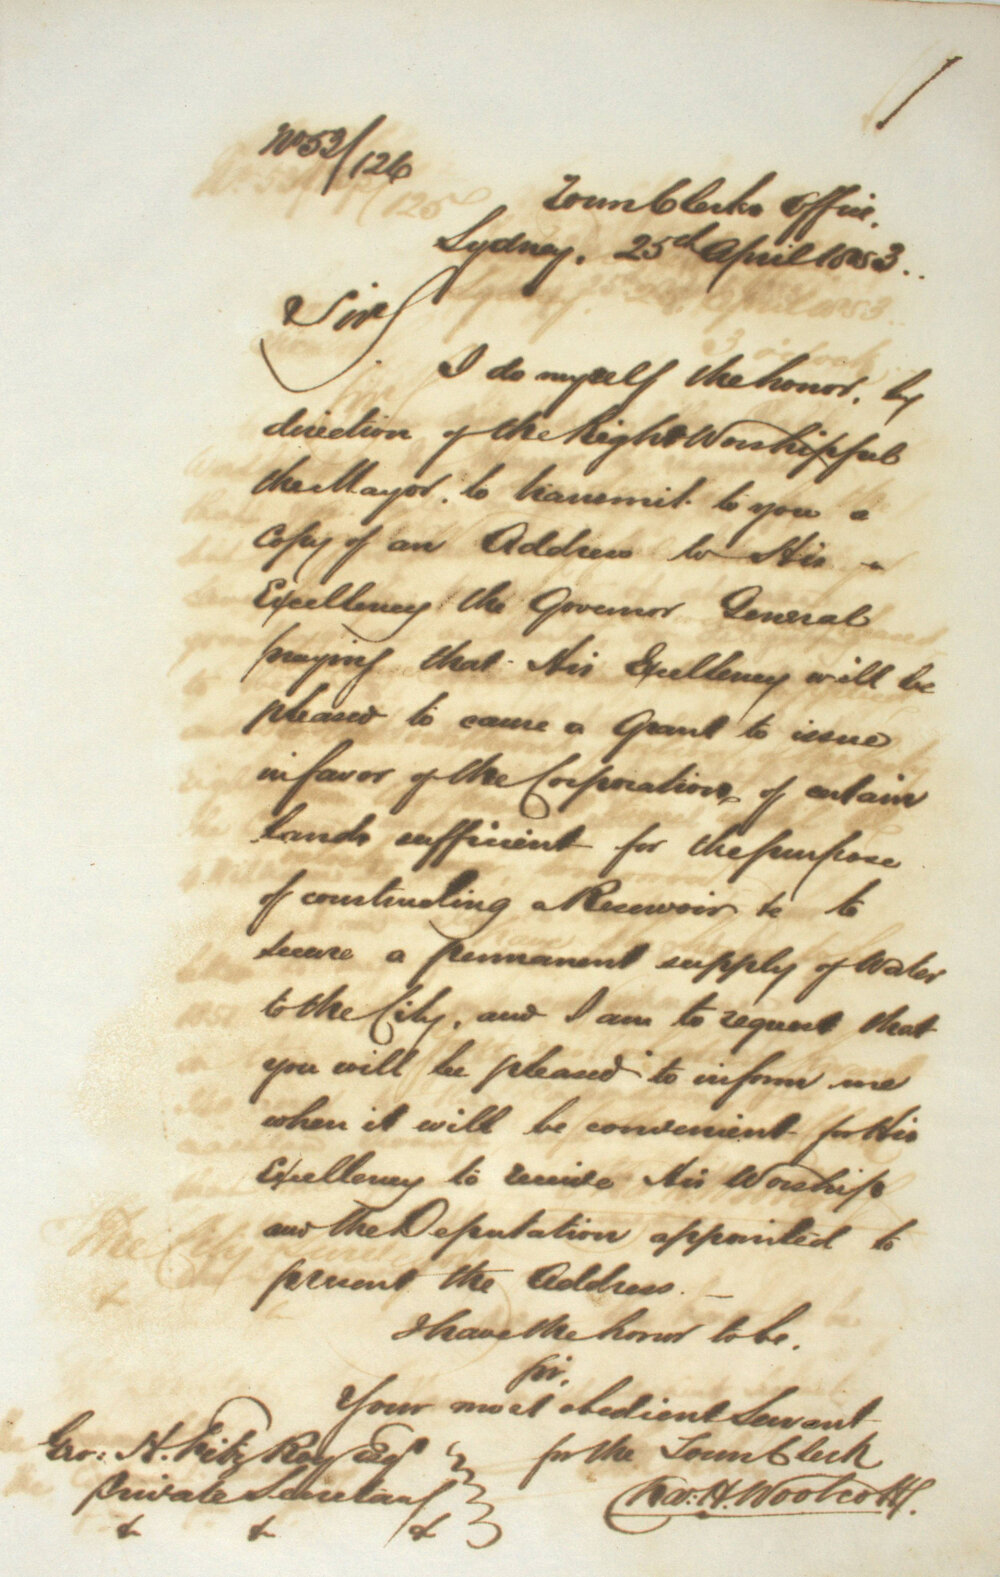 No 53/126
Town Clerks Office,
Sydney, 25th April 1853.
Sir
I do myself the honor, by
direction of the Right Worshipful
the Mayor, to transmit to you a
Copy of an Address to His
Excellency the Governor General
praying that His Excellency will be
pleased to cause a Grant to issue
in favor of the Corporation, of certain
lands sufficient for the purpose
of constructing a Reservoir &c to
secure a permanent supply of Water
to the City, and I am to request that
you will be pleased to inform me
when it will be convenient for His
Excellency to receive His Worship
and the Deputation appointed to
present the Address.
I have the honor to be,
Sir,
Your most obedient Servant
for the Town Clerk
Chas: H. Woolcott.
Geo: H. Fitz Roy Esqr
Private Secretary
& & &